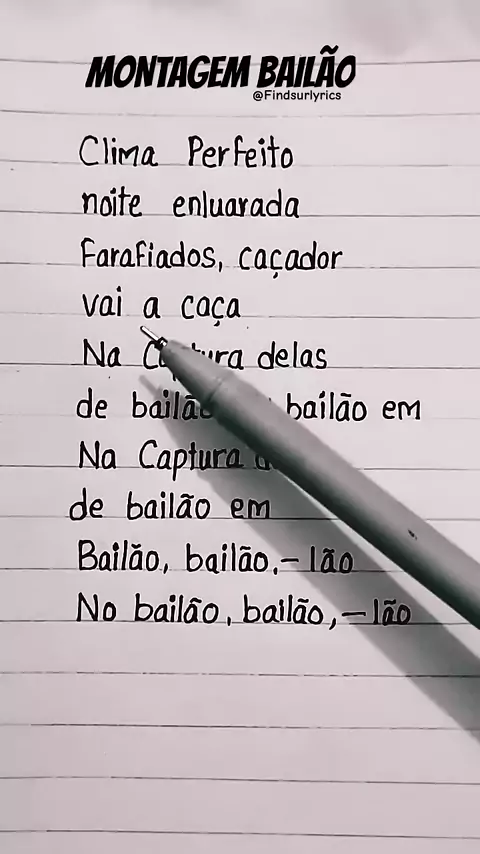 MONTAGEM BAILÃO
@Findsurlyrics
Clima Perfeito
noite enluarada
Farafiados, caçador
vai a caça
Na Captura delas
de bailão bailão em
Na Captura
de bailão em
Bailão, bailão,-lão
No bailão, bailão,-lão